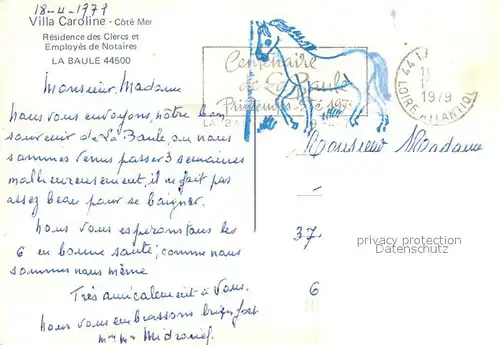 18-4-1979
Villa Caroline - Côté Mer
Résidence des Clercs et
Employés de Notaires
LA BAULE 44500
Centenaire
de La Baule
Printemps-Été 197
LA BA
44 LA
18
1979
LOIRE ATLANTIQUE
Monsieur, Madame
Nous vous envoyons, nôtre bon
souvenir de La Baule, ou nous
sommes venus passer 3 semaines
malheureusement, il ne fait pas
assez beau pour se baigner.
Nous vous esperons tous les
6 en bonne santé; comme nous
sommes nous même
Très amicalement à vous.
Nous vous embrassons bien fort
Monsieur Madame
37.
6
privacy protection
DELCAMPE